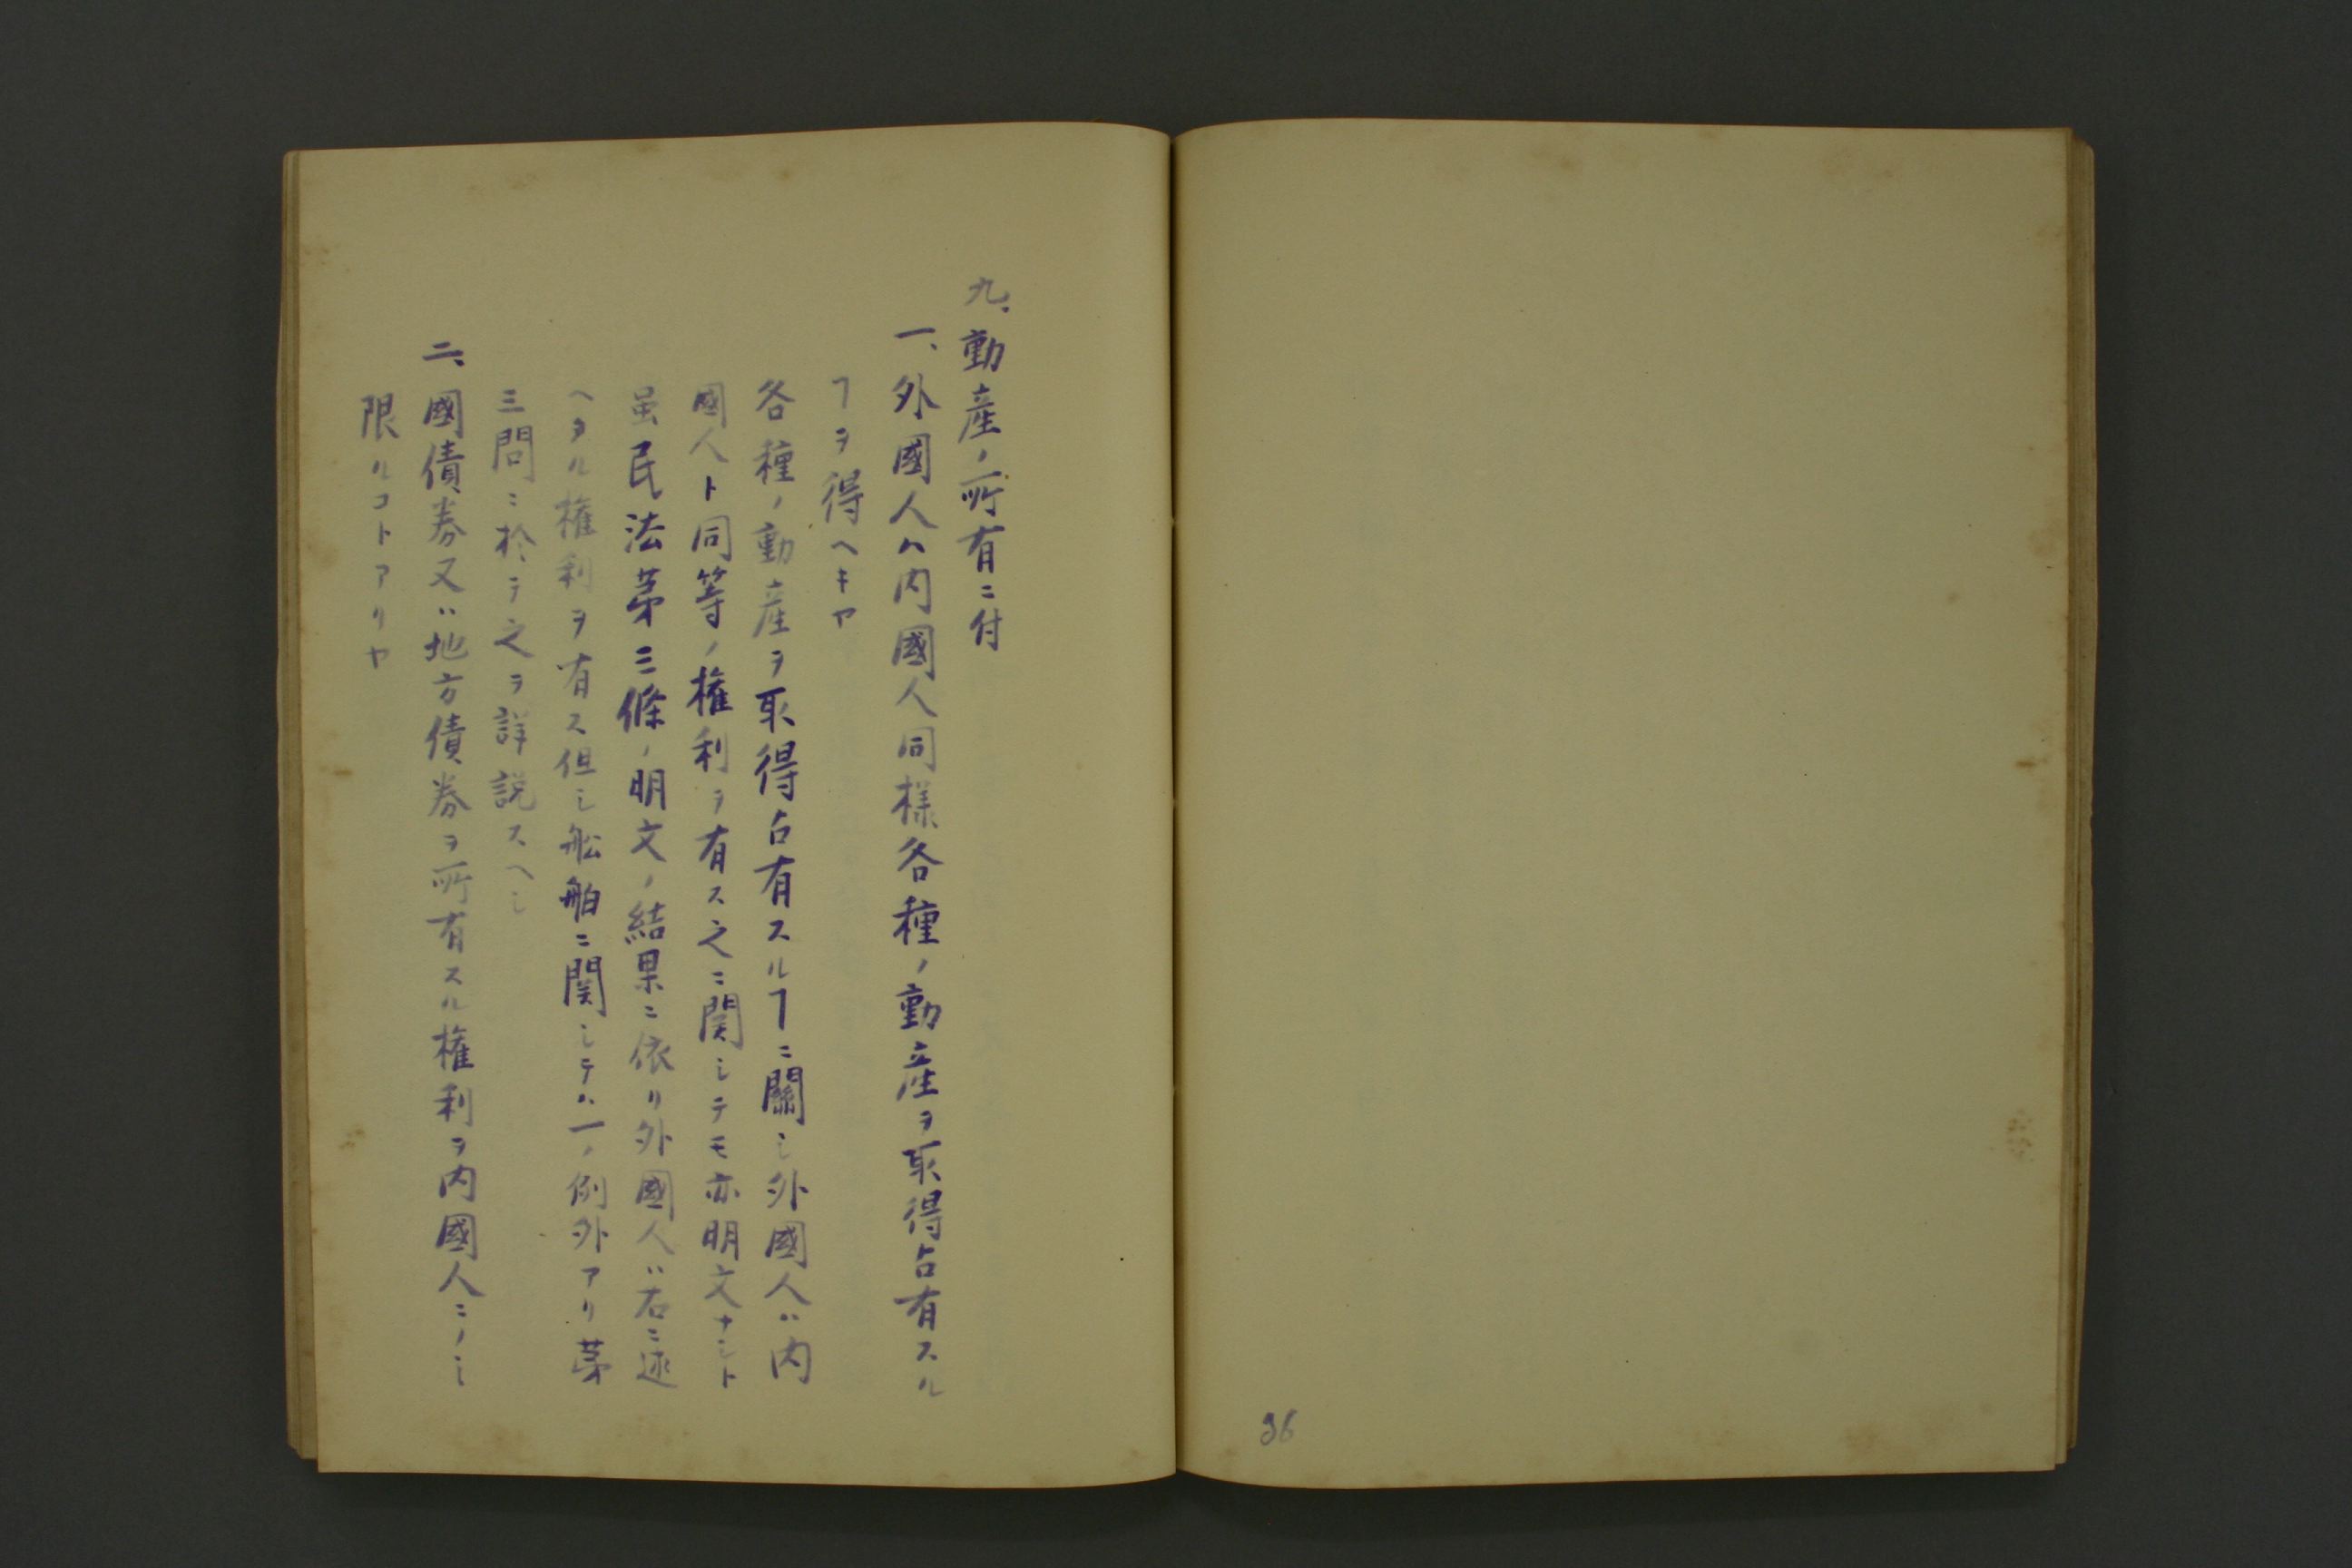 九、動産ノ所有ニ付
一、外國人ハ内國人同様各種ノ動産ヲ取得占有スル
ヿヲ得ヘキヤ
各種ノ動産ヲ取得占有スルヿニ關シ外國人ハ内
國人ト同等ノ権利ヲ有ス之ニ関シテモ亦明文ナシト
虽民法苐三條ノ明文ノ結果ニ依リ外國人ハ右ニ述
ヘタル権利ヲ有ス但シ舩舶ニ関シテハ一ノ例外アリ苐
三問ニ於テ之ヲ詳説スヘシ
二、國債券又ハ地方債券ヲ所有スル権利ヲ内國人ニノミ
限ルコトアリヤ
36